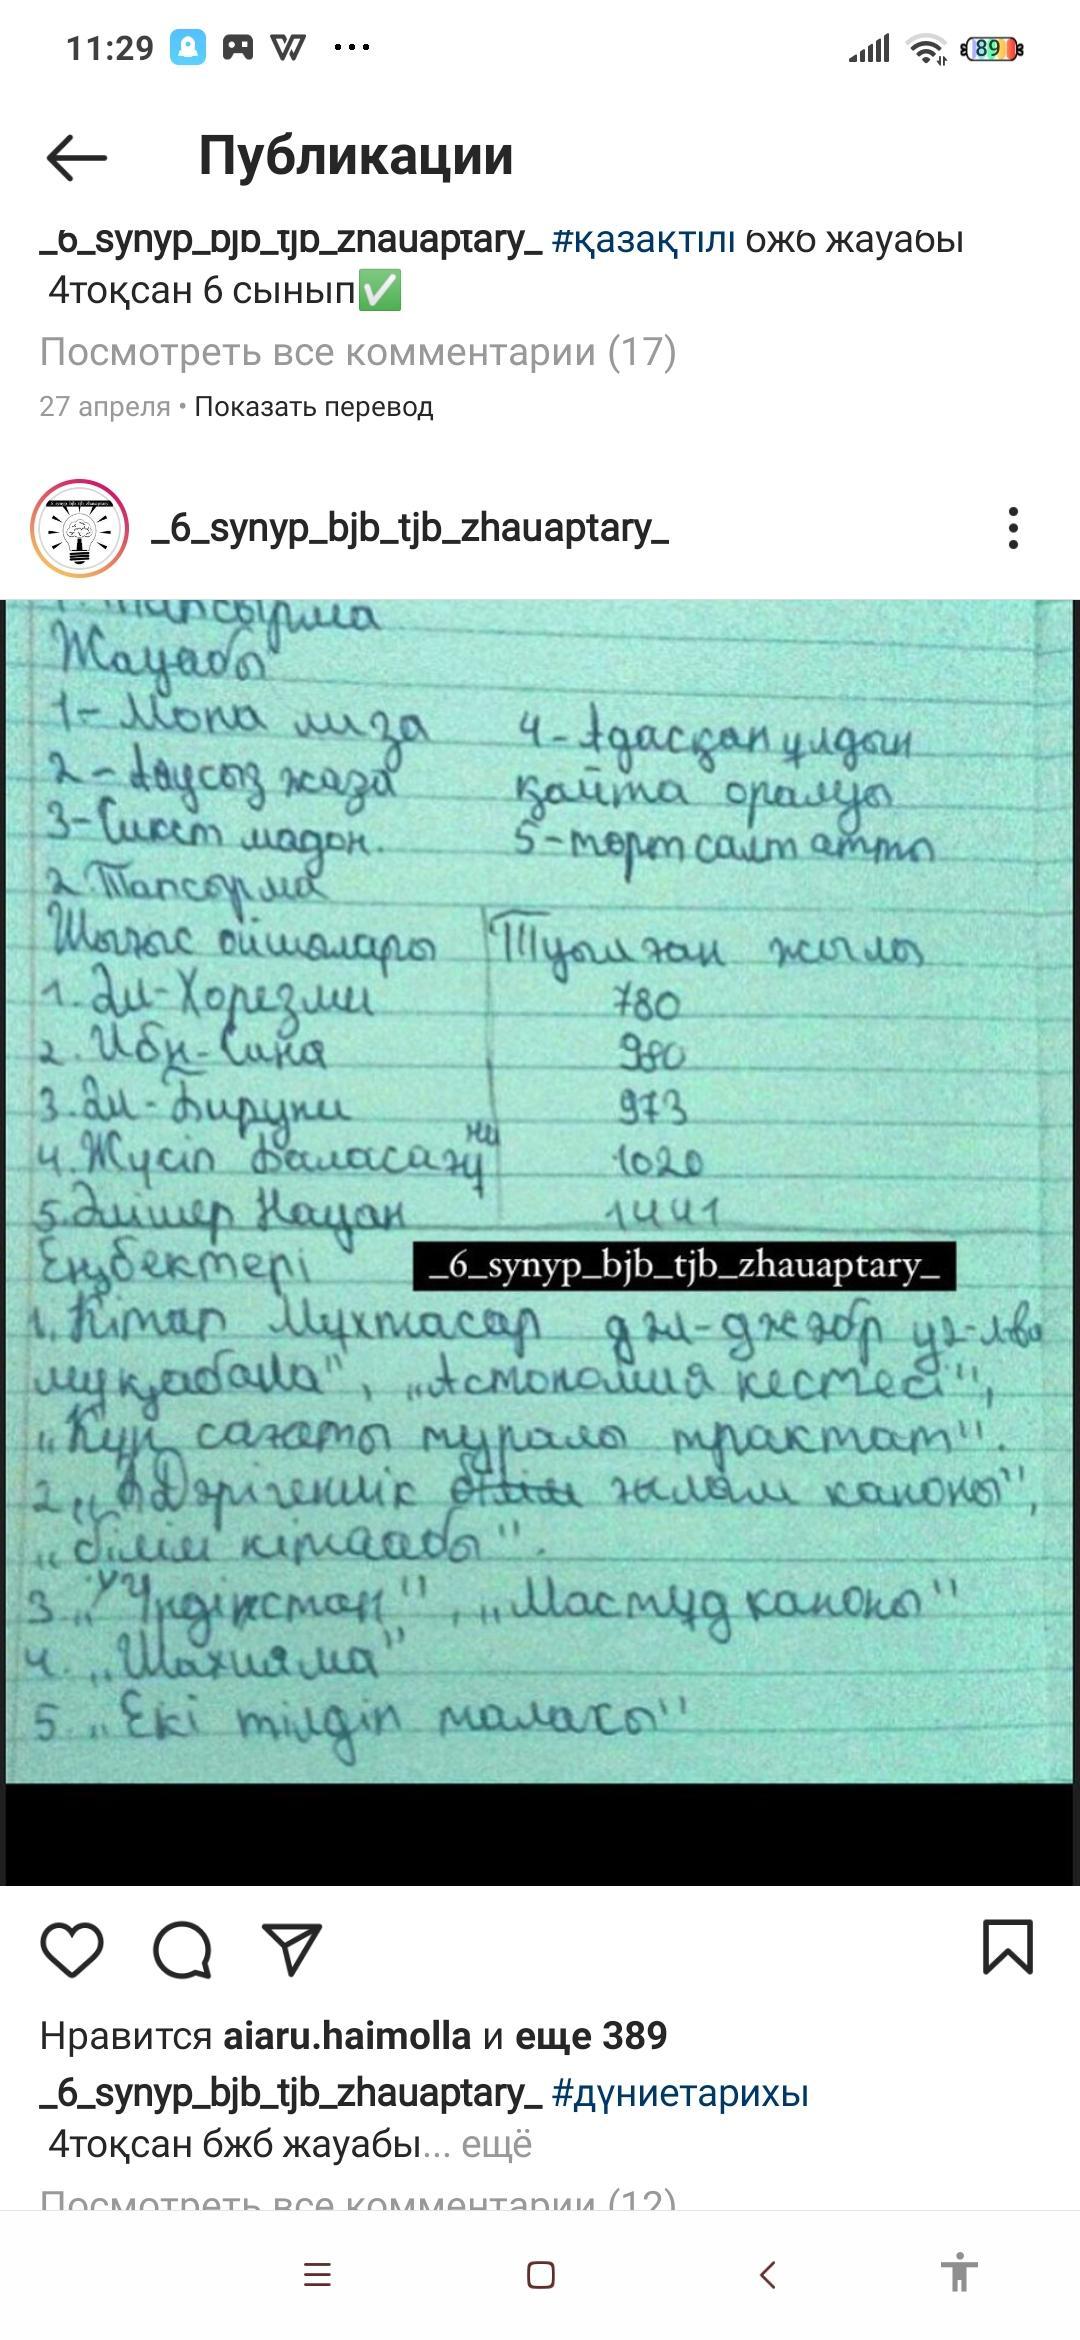 11:29
89
Публикации
_6_synyp_bjb_tjb_zhauaptary_ #қазақтілі бжб жауабы
4тоқсан 6 сынып✅
Посмотреть все комментарии (17)
27 апреля • Показать перевод
_6_synyp_bjb_tjb_zhauaptary_
1. Тапсырма
Жауабы
1- Мона лиза
2- Ауысыз жаза
3- Сикст мадон.
4- Адасқан ұлдын
қайта оралуы
5- төрт салт атты
2. Тапсырма
Шығыс ойшылары Туылған жылы
1. Әл-Хорезми 780
2. Ибн-Сина 980
3. Әл-Бируни 973
4. Жүсіп Баласағұни 1020
5. Әлішер Науаи 1441
Еңбектері
_6_synyp_bjb_tjb_zhauaptary_
1. Кітап Мухтасар
мұқабала", „Астономия кестесі",
„Күн сағаты туралы трактат".
2. „Дәрігенлік ғылым каноны",
„білім кітаабы".
3. „Үндінстан", „Мастұд каноны"
4. „Шахияма"
5. „Екі тілдін таласы"
Нравится aiaru.haimolla и еще 389
_6_synyp_bjb_tjb_zhauaptary_ #дүниетарихы
4тоқсан бжб жауабы... ещё
Посмотреть все комментарии (12)